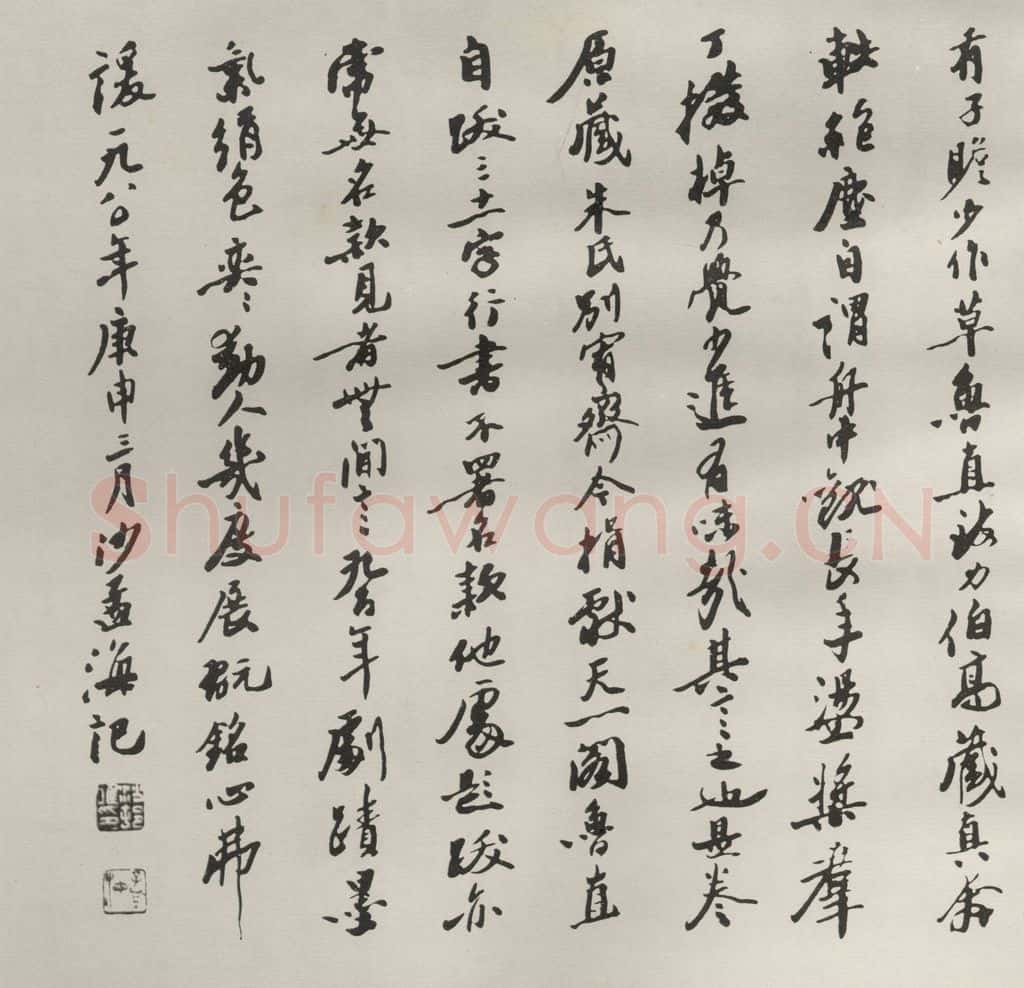 有子瞻少作草魯直致力伯高藏真奔
軼絕塵自謂舟中觀長年盪槳羣
丁撥棹乃覺少進有味哉其言之也是卷
原藏朱氏別宥齋今捐獻天一閣魯直
自跋三十一字行書不署名款他處題跋亦
常無名款見者無間言九百年劇蹟墨
氣絹色奕〻動人幾度展翫銘心弗
諼一九八〇年庚申三月沙孟海記
Shufawang.CN